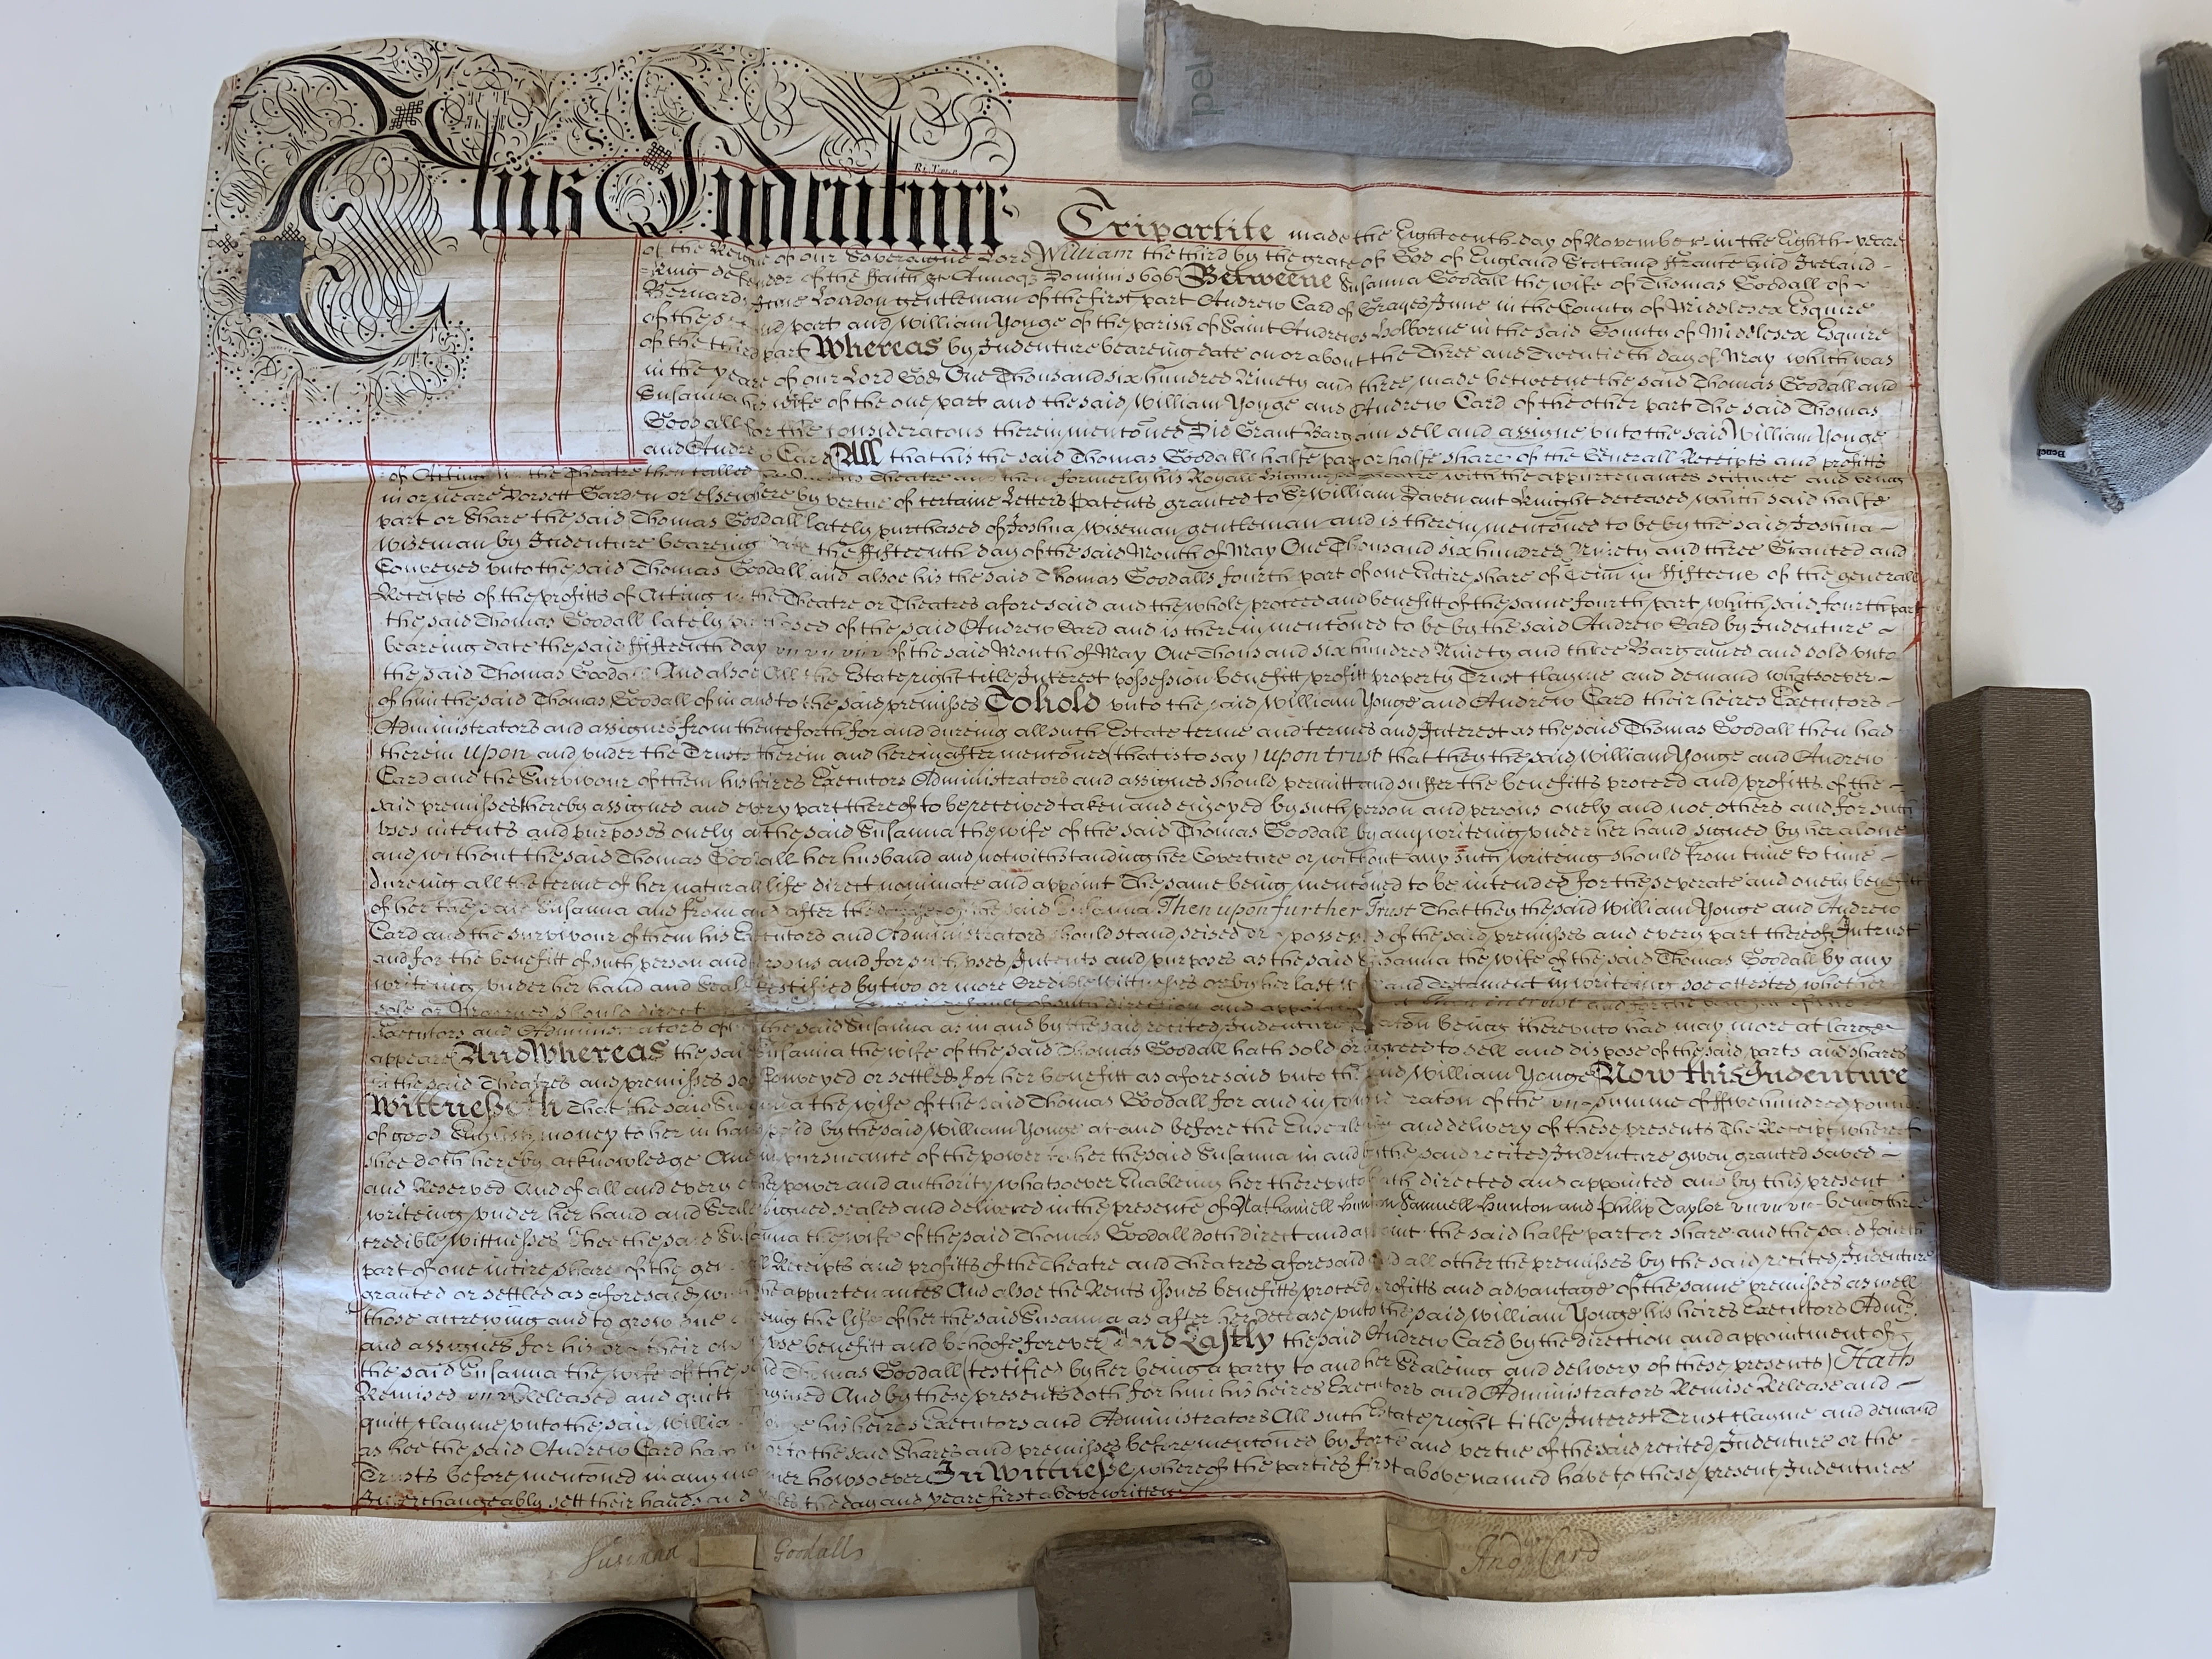 This Indenture
Tripartite made the Eighteenth day of November in the Eighth yeare
of the Reigne of our Soveraigne Lord William the third by the grace of God of England Scotland France and Ireland
King defender of the Faith &c Annoq Domini 1696 Betweene Susanna Goodall the wife of Thomas Goodall of
Bernards Inne London gentleman of the first part Andrew Card of Grayes Inne in the County of Middlesex Esquire
of the second part and William Yonge of the parish of Saint Andrews Holborne in the said County of Middlesex Esquire
of the third part Whereas by Indenture beareing date on or about the Three and Twentieth day of May which was
in the yeare of our Lord God One Thousand six hundred Ninety and three made betweene the said Thomas Goodall and
Susanna his wife of the one part and the said William Yonge and Andrew Card of the other part The said Thomas
Goodall for the consideracons therein mentoned Did Grant Bargain sell and assigne unto the said William Yonge
and Andrew Card All that his the said Thomas Goodalls halfe part or halfe share of the Generall Receipts and profitts
of Acting in the Theatre then called Theatre and then formerly his Royall Highness Theatre with the appurtenances scituate and being
in or neare Dorsett Garden or elsewhere by vertue of certaine Letters Patents granted to Sr William Davenant Knight deceased which said halfe
part or share the said Thomas Goodall lately purchased of Joshua Wiseman gentleman and is therein mentoned to be by the said Joshua
Wiseman by Indenture beareing date the fifteenth day of the said Month of May One Thousand six hundred Ninety and three Granted and
Conveyed unto the said Thomas Goodall and alsoe his the said Thomas Goodalls fourth part of one entire share of Tenn in fifteene of the generall
Receipts of the profitts of Acting in the Theatre or Theatres aforesaid and the whole proceed and benefitt of the same fourth part which said fourth part
the said Thomas Goodall lately purchased of the said Andrew Card and is therein mentoned to be by the said Andrew Card by Indenture
beareing date the said fifteenth day of the said Month of May One Thousand six hundred Ninety and three Bargained and sold unto
the said Thomas Goodall And alsoe All the Estate right title Interest possession benefitt profitt property Trust clayme and demand whatsoever
of him the said Thomas Goodall of in and to the said premisses To hold unto the said William Yonge and Andrew Card their heires Executors
Administrators and assignes from thenceforth for and dureing all such Estate terme and termes and Interest as the said Thomas Goodall then had
therein upon and under the Trusts therein and hereinafter mentoned (that is to say) upon trust that they the said William Yonge and Andrew
Card and the Survivour of them his heires Executors Administrators and assignes should permitt and suffer the benefitts proceed and profitts of the
said premisses thereby assigned and every part thereof to be received taken and enjoyed by such person and persons onely and noe others and for such
uses intents and purposes onely as the said Susanna the wife of the said Thomas Goodall by any writeing under her hand signed by her alone
and without the said Thomas Goodall her husband and notwithstanding her Coverture or without any such writeing should from time to time
dureing all the terme of her naturall life direct nominate and appoint The same being mentoned to be intended for the seperate and onely benefitt
of her the said Susanna and from and after the decease of the said Susanna Then upon further Trust That they the said William Yonge and Andrew
Card and the survivour of them his Executors and Administrators should stand seised or possessed of the said premisses and every part thereof In trust
and for the benefitt of such person and persons and for such uses Intents and purposes as the said Susanna the wife of the said Thomas Goodall by any
writeing under her hand and Seale testified by two or more Credible Wittnesses or by her last Will and Testament in writeing soe attested whether
sole or Married should direct in default of such direction and appointment then in trust and for the benefitt of the
Executors and Administrators of the said Susanna as in and by the said recited Indenture relaton being thereunto had may more at large
appeare And Whereas the said Susanna the wife of the said Thomas Goodall hath sold or agreed to sell and dispose of the said parts and shares
in the said Theatres and premisses soe Conveyed or settled for her benefitt as aforesaid unto the said William Yonge Now this Indenture
Wittnesseth That the said Susanna the wife of the said Thomas Goodall for and in consideraton of the summe of ffive hundred pounds
of good English money to her in hand paid by the said William Yonge at and before the Ensealeing and delivery of these presents The Receipt whereof
shee doth hereby acknowledge And in pursuance of the power to her the said Susanna in and by the said recited Indenture given granted saved
and Reserved And of all and every other power and authority whatsoever Enableing her thereunto hath directed and appointed and by this present
writeing under her hand and Seale signed sealed and delivered in the presence of Nathaniell Hunton Samuell Hunton and Philip Taylor being three
credible wittnesses Shee the said Susanna the wife of the said Thomas Goodall doth direct and appoint the said halfe part or share and the said fourth
part of one intire share of the generall Receipts and profitts of the Theatre and Theatres aforesaid and all other the premisses by the said recited Indenture
granted or settled as aforesaid with the appurtenances And alsoe the Rents issues benefitts proceed profitts and advantage of the same premisses as well
those accrewing and to grow due dureing the life of her the said Susanna as after her decease unto the said William Yonge his heires Executors Admrs
and assignes for his or their own use benefitt and behoofe forever And Lastly the said Andrew Card by the direction and appointment of
the said Susanna the wife of the said Thomas Goodall (testified by her being a party to and her Sealeing and delivery of these presents) Hath
Remised Released and quitt claymed And by these presents doth for him his heires Executors and Administrators Remise Release and
quitt clayme unto the said William Yonge his heires Executors and Administrators All such Estate right title Interest Trust clayme and demand
as hee the said Andrew Card hath in or to the said Shares and premisses before mentoned by force and vertue of the said recited Indenture or the
Trusts before mentoned in any manner howsoever In Wittnesse whereof the parties first above named have to these present Indentures
Interchangeably sett their hands and Seales the day and yeare first above written
Susanna Goodall
And: Card